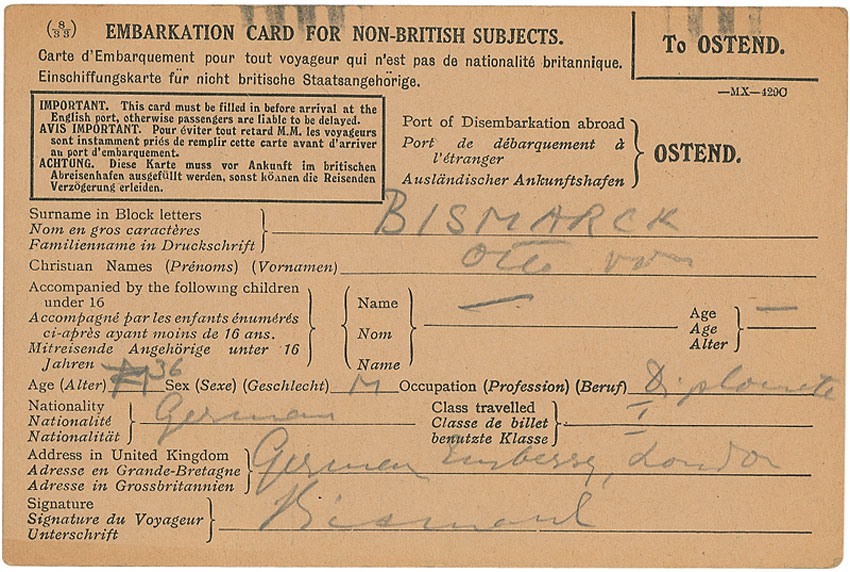 (8/33) EMBARKATION CARD FOR NON-BRITISH SUBJECTS.
To OSTEND.
Carte d'Embarquement pour tout voyageur qui n'est pas de nationalité britannique.
Einschiffungskarte für nicht britische Staatsangehörige.
—MX—4290
IMPORTANT. This card must be filled in before arrival at the
English port, otherwise passengers are liable to be delayed.
AVIS IMPORTANT. Pour éviter tout retard M.M. les voyageurs
sont instamment priés de remplir cette carte avant d'arriver
au port d'embarquement.
ACHTUNG. Diese Karte muss vor Ankunft im britischen
Abreisenhafen ausgefüllt werden, sonst können die Reisenden
Verzögerung erleiden.
Port of Disembarkation abroad
Port de débarquement à
l'étranger
Ausländischer Ankunftshafen
OSTEND.
Surname in Block letters
Nom en gros caractères
Familienname in Druckschrift
BISMARCK
Christian Names (Prénoms) (Vornamen) Otto von
Accompanied by the following children
under 16
Accompagné par les enfants énumérés
ci-après ayant moins de 16 ans.
Mitreisende Angehörige unter 16
Jahren
Name —
Nom
Name
Age —
Age
Alter
Age (Alter) 36 Sex (Sexe) (Geschlecht) M Occupation (Profession) (Beruf) Diplomate
Nationality
Nationalité
Nationalität
German
Class travelled
Classe de billet
benutzte Klasse
I
Address in United Kingdom
Adresse en Grande-Bretagne
Adresse in Grossbritannien
German Embassy, London
Signature
Signature du Voyageur
Unterschrift
Bismarck